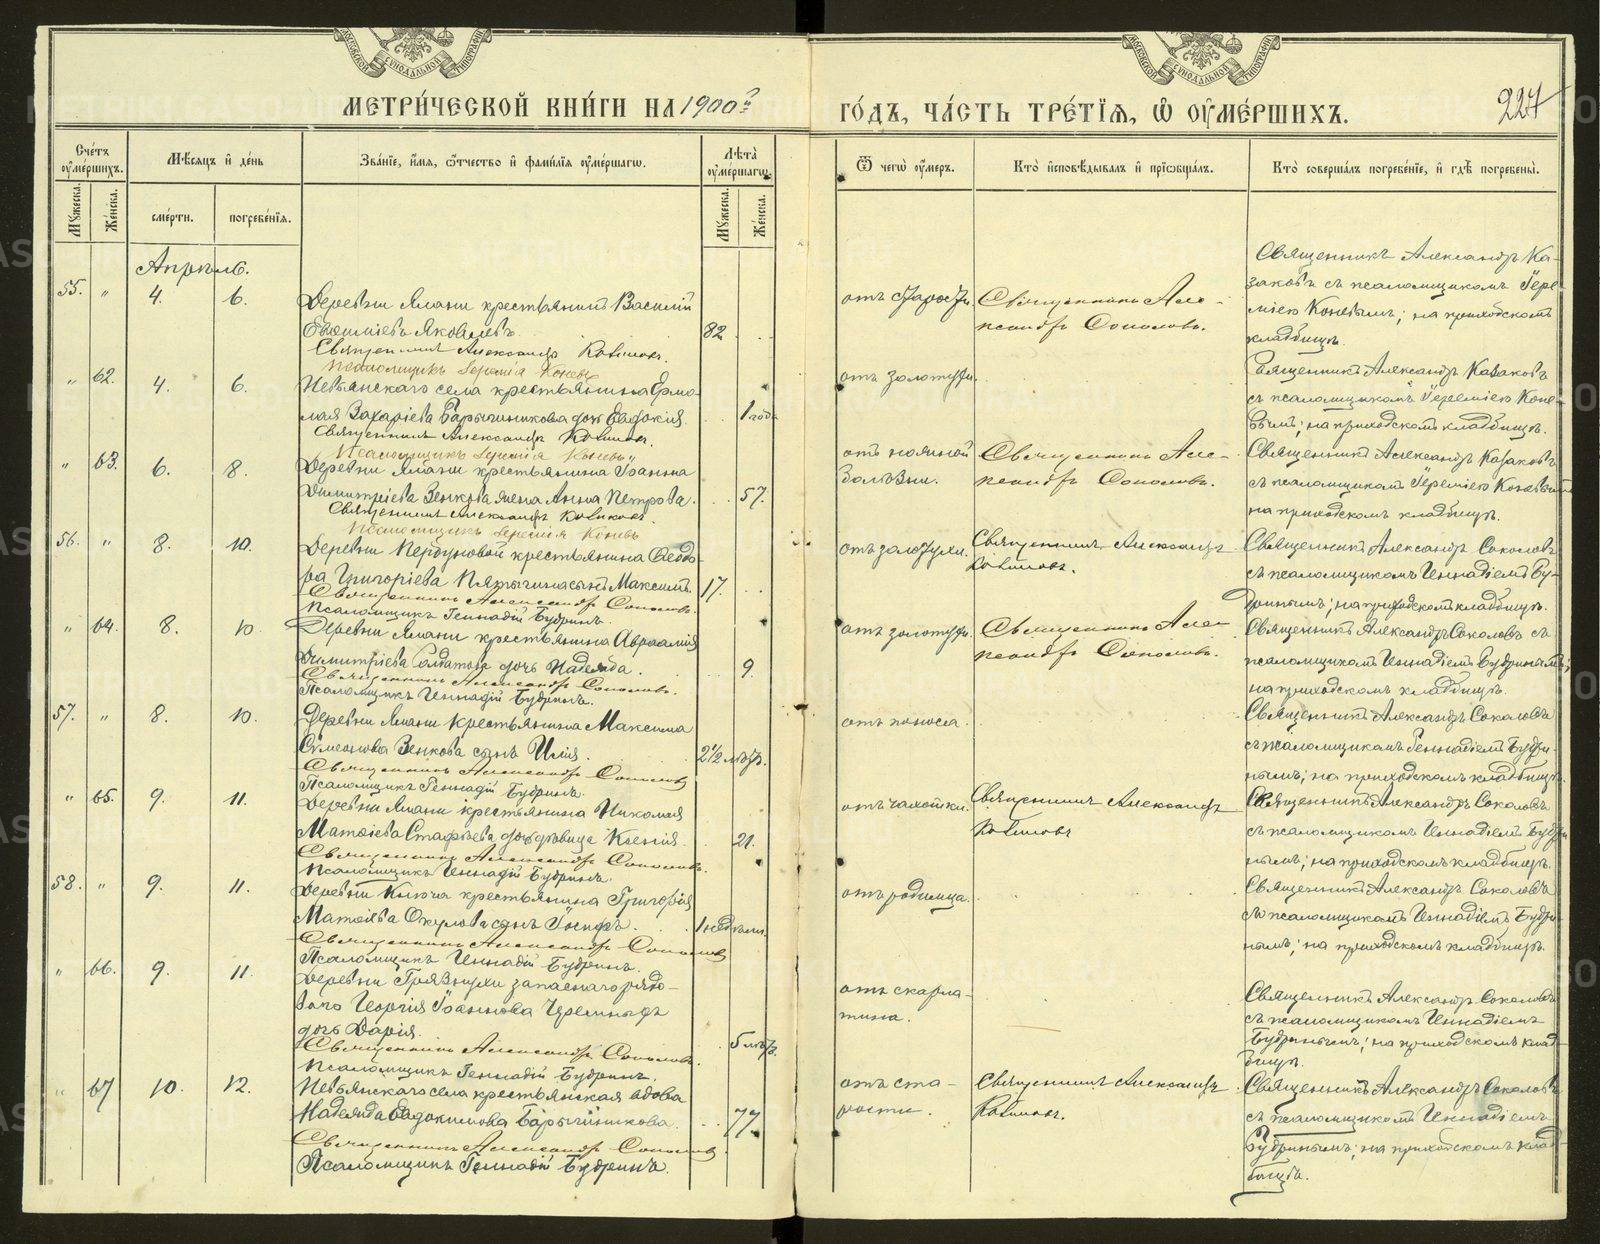 МЕТРИ́ЧЕСКОЙ КНИ́ГИ НА 1900й
ГО́ДЪ, ЧА́СТЬ ТРЕ́ТІЯ, Ѡ҆ ОУ҆МЕ́РШИХЪ.
227
Сче́тъ оу҆ме́ршихъ.
Мѣ́сяцъ и҆ де́нь
Зва́ніе, и҆́мя, ѻ҆́тчество и҆ фами́лія оу҆ме́ршагѡ.
Лѣ́та оу҆ме́ршагѡ.
Ѿ чегѡ̀ оу҆́меръ.
Кто̀ и҆сповѣ́дывалъ и҆ прїѡбща́лъ.
Кто̀ соверша́лъ погребе́ніе, и҆ гдѣ̀ погребены̀.
Му́жеска.
Же́нска.
сме́рти.
погребе́нія.
Му́жеска.
Же́нска.
Апрѣль.
55. " 4. 6.
Деревни Ямани крестьянинъ Василій
Евѳиміевъ Яковлевъ. 82
Священникъ Александръ Казаковъ.
Псаломщикъ Іеремія Коневъ
отъ старости.
Священникъ Александръ Соколовъ.
Священникъ Александръ Ка-
заковъ съ псаломщикомъ Іере-
міею Коневымъ; на приходскомъ
кладбищѣ.
" 62. 4. 6.
Невьянскаго села крестьянина Ермо-
лая Захаріева Барышникова дочь Евдокія. 1 годъ
Священникъ Александръ Казаковъ.
Псаломщикъ Іеремія Коневъ
отъ золотухи.
Священникъ Александръ Казаковъ
съ псаломщикомъ Іереміею Коне-
вымъ; на приходскомъ кладбищѣ.
" 63. 6. 8.
Деревни Ямани крестьянина Іоанна
Димитріева Зенкова жена Анна Петрова. 57.
Священникъ Александръ Казаковъ.
Псаломщикъ Іеремія Коневъ
болѣзни.
Священникъ Але-
ксандръ Соколовъ.
Священникъ Александръ Казаковъ
съ псаломщикомъ Іереміею Коневымъ
на приходскомъ кладбищѣ.
56. " 8. 10.
крестьянина Ѳеодо-
ра Григоріева сынъ Максимъ 17.
Священникъ Александръ Соколовъ.
Псаломщикъ Геннадій Будринъ.
отъ золотухи.
Священникъ Александръ
Казаковъ.
Священникъ Александръ Соколовъ
съ псаломщикомъ Геннадіемъ Бу-
дринымъ; на приходскомъ кладбищѣ.
" 64. 8. 10
Деревни Ямани крестьянина Авраамія
Димитріева Солдатова дочь Надежда. 9.
Священникъ Александръ Соколовъ.
Псаломщикъ Геннадій Будринъ.
отъ золотухи.
Священникъ Але-
ксандръ Соколовъ.
Священникъ Александръ Соколовъ съ
псаломщикомъ Геннадіемъ Будринымъ;
на приходскомъ кладбищѣ.
57. " 8. 10.
Деревни Ямани крестьянина Максима
Симеонова Зенкова сынъ Илія. 2 1/2 мѣс.
Священникъ Александръ Соколовъ
Псаломщикъ Геннадій Будринъ.
отъ поноса.
Священникъ Александръ Соколовъ
съ псаломщикомъ Геннадіемъ Будри-
нымъ; на приходскомъ кладбищѣ.
" 65. 9. 11.
Деревни Ямани крестьянина Николая
Матѳіева дочь дѣвица Ксенія. 21.
Священникъ Александръ Соколовъ.
Псаломщикъ Геннадій Будринъ.
отъ чахотки.
Священникъ Александръ
Казаковъ
Священникъ Александръ Соколовъ
съ псаломщикомъ Геннадіемъ Будри-
нымъ; на приходскомъ кладбищѣ.
58. " 9. 11.
Деревни Ключа крестьянина Григорія
Матѳіева Окулова сынъ Іосифъ. 1 недѣли.
Священникъ Александръ Соколовъ
Псаломщикъ Геннадій Будринъ.
отъ родимца.
Священникъ Александръ Соколовъ
съ псаломщикомъ Геннадіемъ Будри-
нымъ; на приходскомъ кладбищѣ.
" 66. 9. 11.
Деревни Грязнухи запаснаго рядо-
ваго Георгія Іоаннова
дочь Дарія. 5 мѣс.
Священникъ Александръ Соколовъ.
Псаломщикъ Геннадій Будринъ.
отъ скарла-
тина.
Священникъ Александръ Соколовъ
съ псаломщикомъ Геннадіемъ
Будринымъ; на приходскомъ клад-
бищѣ.
" 67 10. 12.
Невьянскаго села крестьянская вдова
Надежда Евдокимова Барышникова. 77.
Священникъ Александръ Соколовъ.
Псаломщикъ Геннадій Будринъ.
отъ ста-
рости.
Священникъ Александръ
Казаковъ.
Священникъ Александръ Соколовъ
съ псаломщикомъ Геннадіемъ
Будринымъ; на приходскомъ клад-
бищѣ.